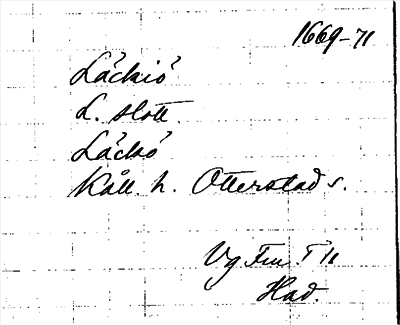 1669-71
Läckiö
L. slott.
Läckö
Kåll. h. Otterstad s.
Vg Fm. I 11
Had.